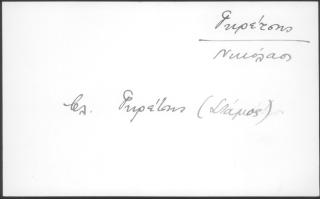 Γκρέτσης
Νικόλαος
βλ. Γκρέτσης (Στάμος)